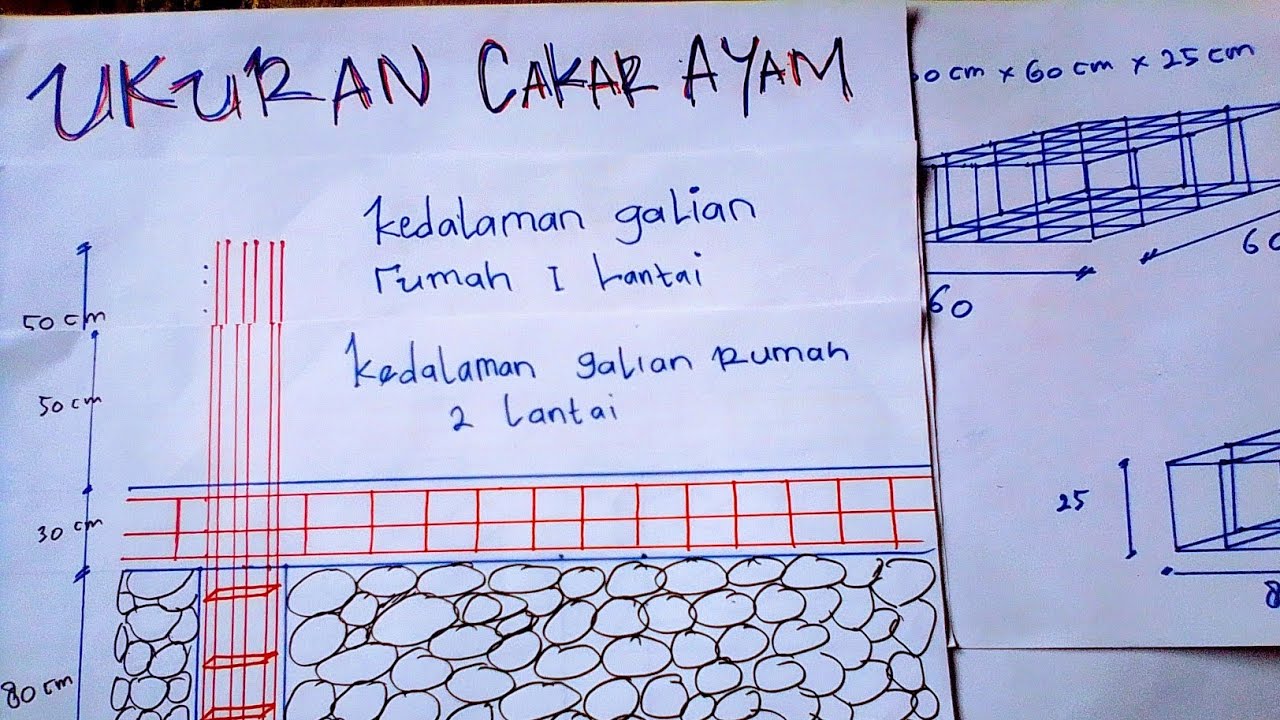 UKURAN CAKAR AYAM
kedalaman galian
rumah I Lantai
kedalaman galian Rumah
2 Lantai
50 cm
50 cm
30 cm
80 cm
0 cm × 60 cm × 25 cm
60
60
25
8